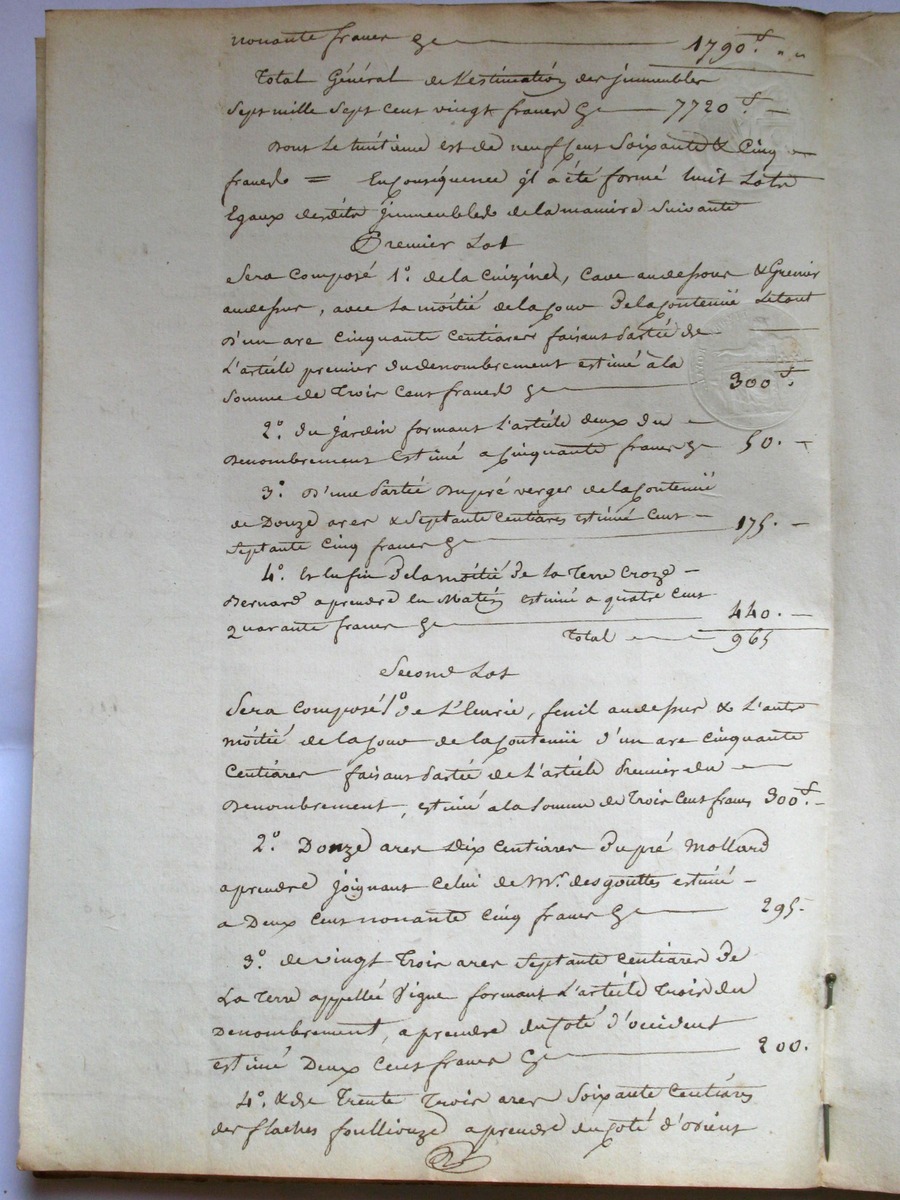 nonante francs Cy — 1790.f " "
Total Général de l'estimation des jmmeubles
Sept mille Sept Cent vingt francs Cy — 7720 f —
Dont le huitieme est de neuf Cent Soixante & Cinq
francs = En Conséquence jl a été formé huit Lots
Egaux desdits jmmeubles de la maniere Suivante
Premier Lot
Sera Composé 1°. de la Cuizine, Cave au dessous & Grenier
au dessus, avec la moitié de la Cour De la Contenüe Le tout
D'un are Cinquante Centiares faisant Partie de
L'article premier du denombrement estimé à la
Somme de Trois Cent francs Cy — 300 f.
2°. du jardin formant L'article deux du —
Denombrement Estimé a Cinquante francs Cy 50. —
3°. D'une Partie Du pré verger de la Contenüe
de Douze ares & Septante Centiares estimé Cent —
Septante Cinq francs Cy — 175. —
4°. Et Enfin De la moitié De la Terre Croze —
Bernard a prendre en Matin estimé a quatre Cent
Quarante francs Cy — 440. —
Total — 965
Second Lot
Sera Composé 1° de L'Ecurie, fenil au dessus & L'autre
moitié de la Cour de la Contenüe d'un are Cinquante
Centiares faisant Partie de L'article Premier du —
Denombrement, estimé a la Somme de Trois Cent francs 300 f. -
2°. Douze ares Dix Centiares Du pré Mollard
a prendre joignant Celui de Mr. desgouttes estimé —
a Deux Cent nonante Cinq francs Cy — 295 -
3°. de vingt Trois ares Septante Centiares De
La Terre appellée Vigne formant L'article Trois du
Denombrement, a prendre du Coté d'occident
estimé Deux Cent francs Cy — 200.
4°. & de Trente Trois ares Soixante Centiares
des flaches foulliouze a prendre du Coté d'orient